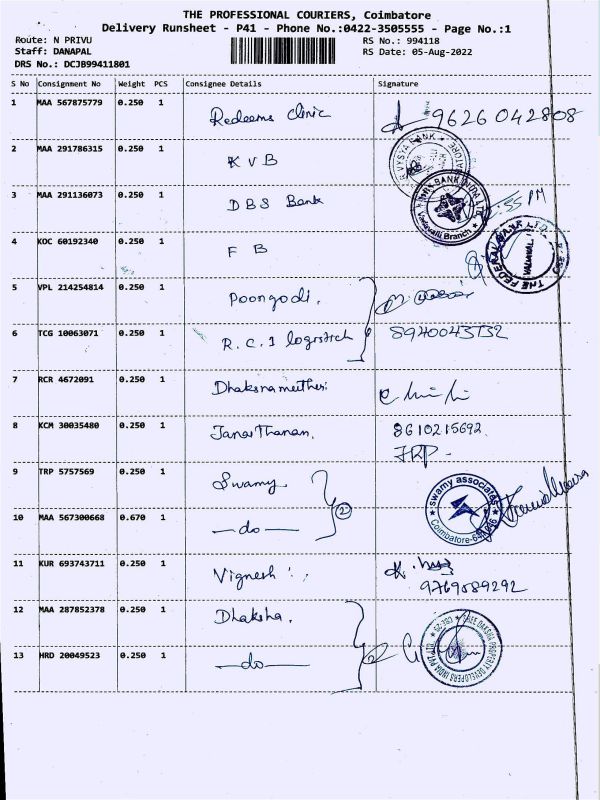 THE PROFESSIONAL COURIERS, Coimbatore
Delivery Runsheet - P41 - Phone No.:0422-3505555 - Page No.:1
Route: N PRIVU RS No.: 994118
Staff: DANAPAL RS Date: 05-Aug-2022
DRS No.: DCJB99411801
S No Consignment No Weight PCS Consignee Details Signature
1 MAA 567875779 0.250 1 Redeems Clinic 9626042808
2 MAA 291786315 0.250 1 KVB
VYSYA BANK
3 MAA 291136073 0.250 1 DBS Bank PM
Vadavalli Branch
4 KOC 60192340 0.250 1 FB
THE FEDERAL BANK LTD
VADAVALLI
5 VPL 214254814 0.250 1 Poongodi.
6 TCG 10063071 0.250 1 R.C.I logistech 8940043132
7 RCR 4672091 0.250 1
8 KCM 30035480 0.250 1 Janarthanan. 8610215692
9 TRP 5757569 0.250 1 Swamy
swamy associates
Coimbatore-641046
10 MAA 567300668 0.670 1 -do- 2
11 KUR 693743711 0.250 1 Vignesh
9769089292
12 MAA 287852378 0.250 1 Dhaksha.
SREE DAKSHA PROPERTY DEVELOPERS INDIA PVT LTD
13 HRD 20049523 0.250 1 -do-